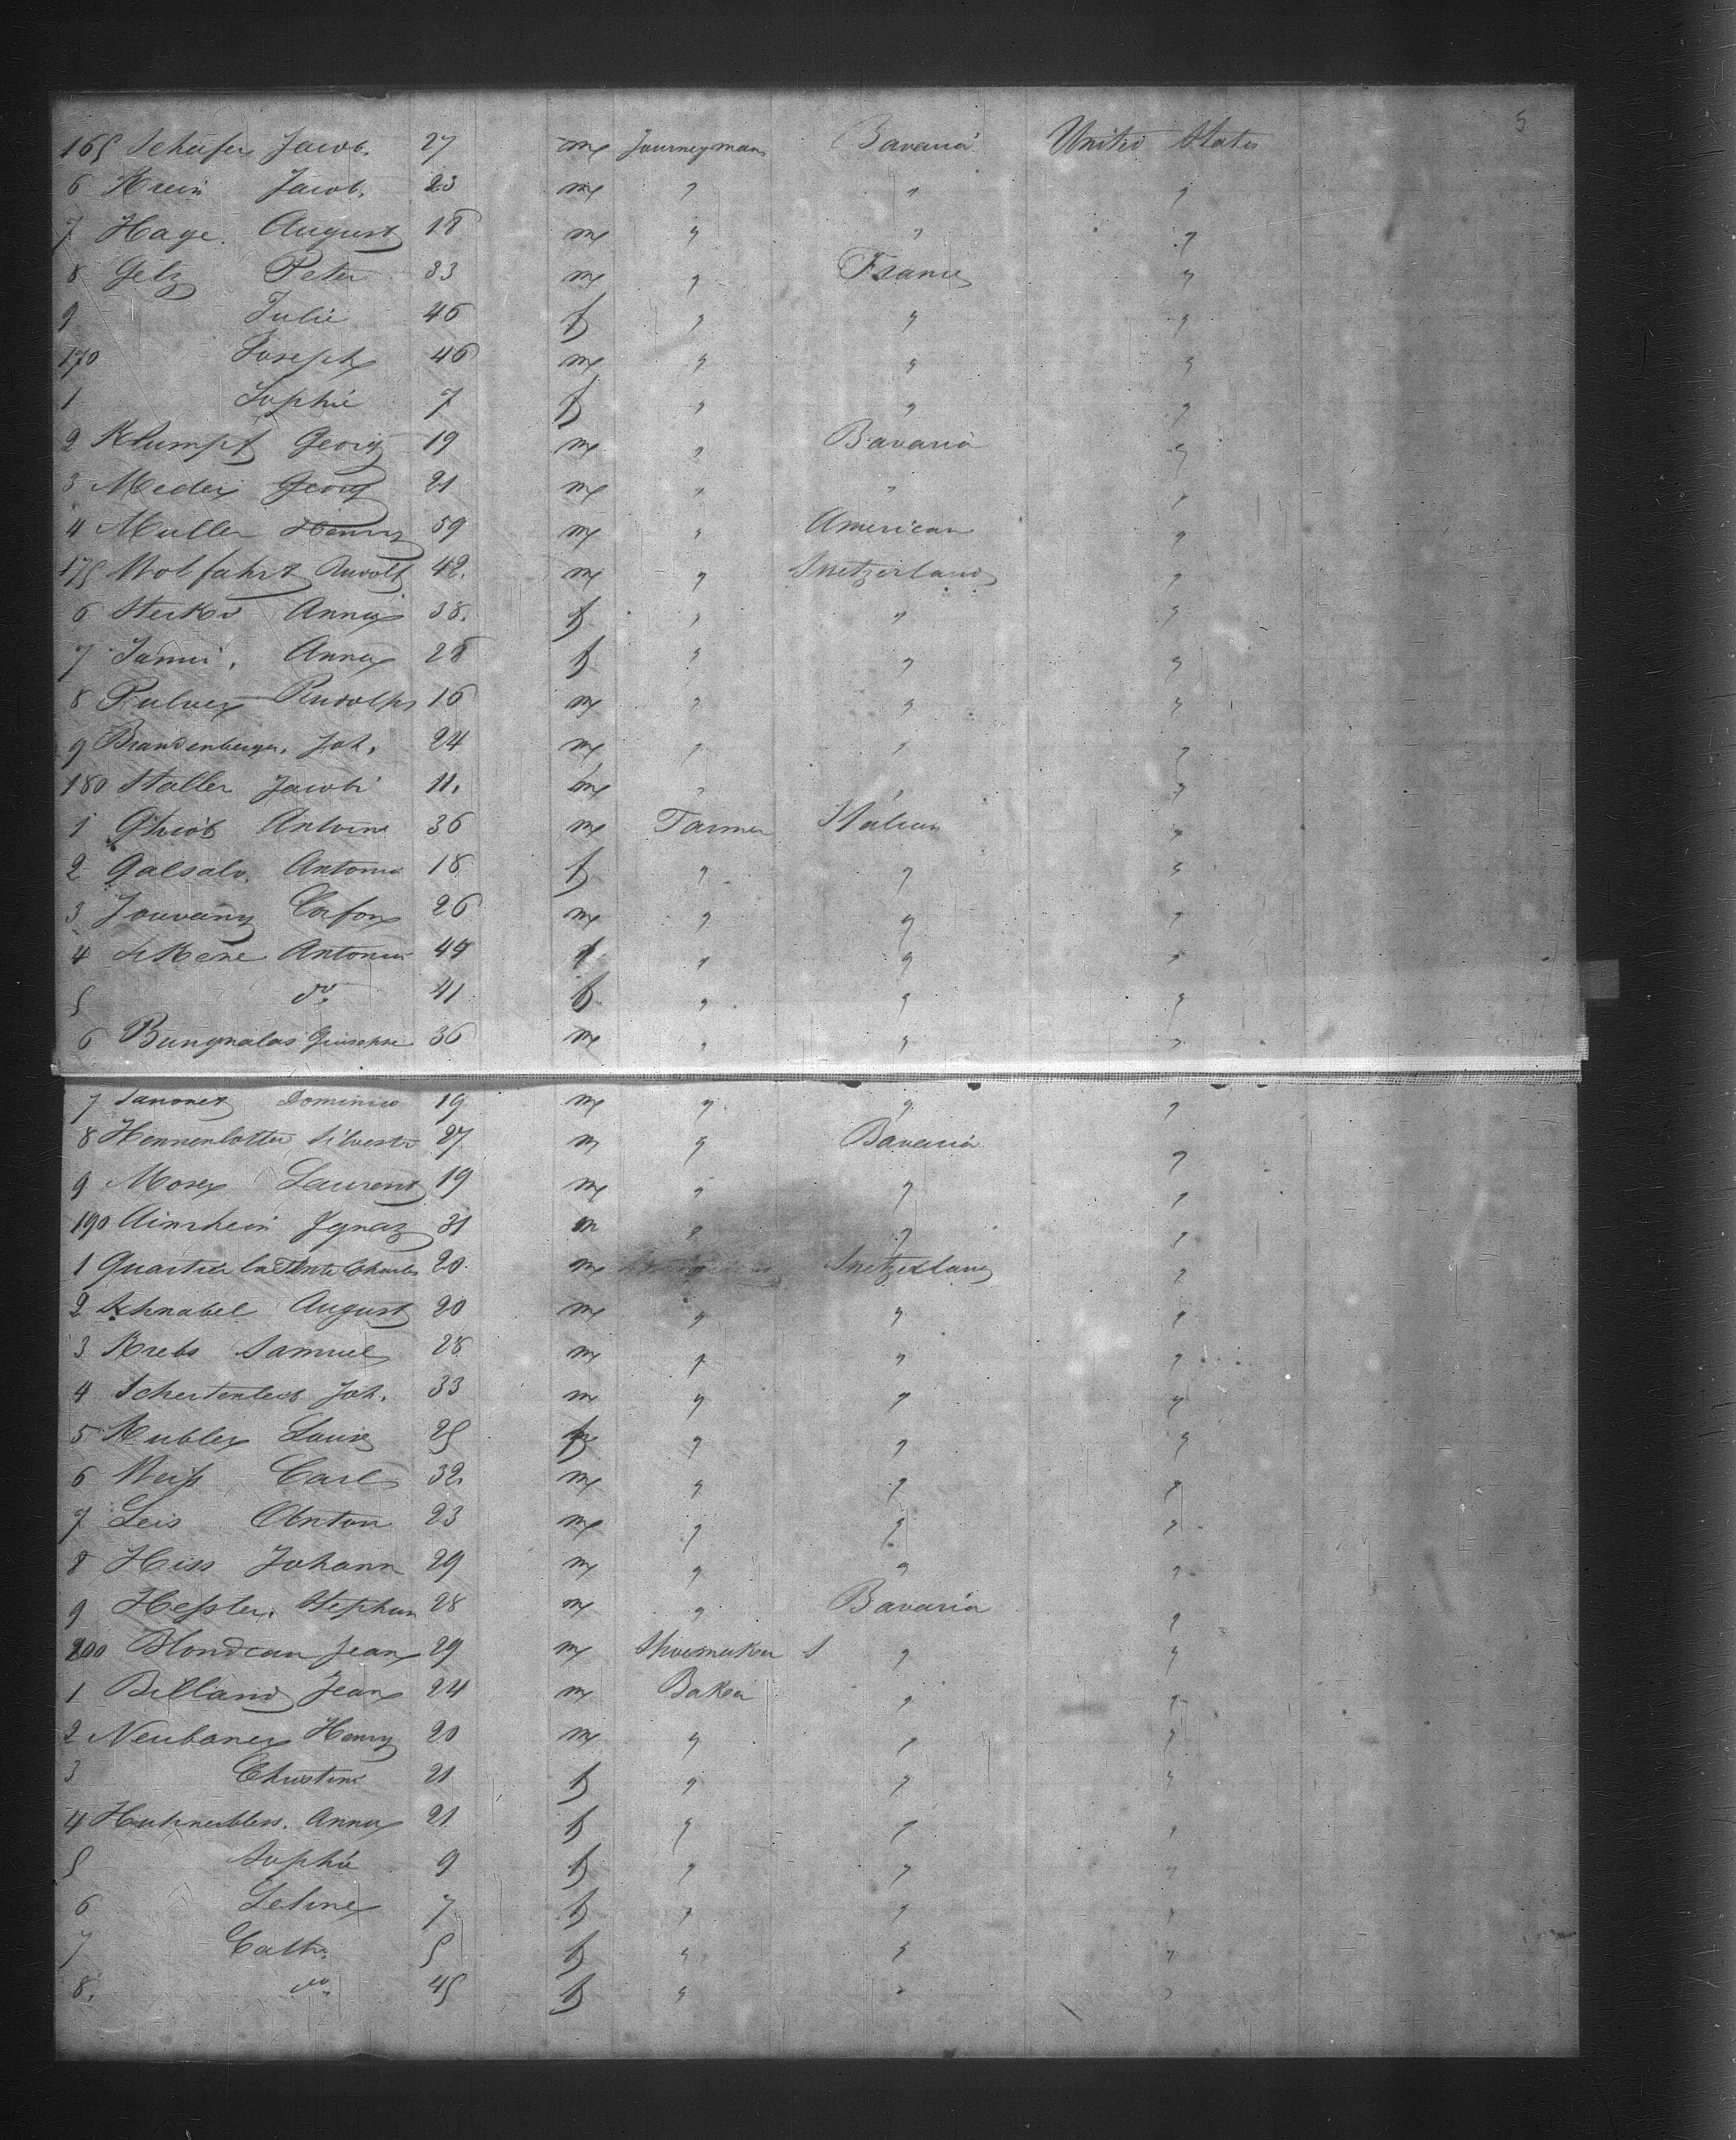 5
165 Schäfer Jacob. 27 m Journeyman Bavaria United States
6 Krein Jacob. 23 m " " "
7 Hage. August 18 m " " "
8 Getz Peter 33 m " France "
9 Julie 46 f " " "
170 Joseph 46 m " " "
1 Sophie 7 f " " "
2 Klumpf Georg 19 m " Bavaria "
3 Meder Georg 21 m " " "
4 Muller Henry 59 m " American "
175 Wolfahrt Rudolf 42. m " Switzerland "
6 Anna 38. f " " "
7 Anna 28 f " " "
8 Pulver Rudolph 16 m " " "
9 Brandenberger. Joh. 24 m " " "
180 Staller Jacob 11. m " " "
1 Antoine 36 m Farmer Italian "
2 Galsalo. Antonia 18 f " " "
3 Jouvany 26 m " " "
4 Antonia 44 " " "
5 do. 41 f " " "
6 Giuseppe 36 m " " "
7 Dominico 19 m " " "
8 Hennenlotter Silvestr 27 m " Bavaria "
9 Moser Laurent 19 m " " "
190 Amrhein Ignaz 31 m " " "
1 Quartier la Tente Charles 20. m Switzerland "
2 Schnabel August 20 m " " "
3 Krebs Samuel 28 m " " "
4 Schertenleib Joh. 33 m " " "
5 Kubler Louis 25 " " "
6 Weiss Carl 32. m " " "
7 Leis Anton 23 m " " "
8 Hiss Johann 29 m " " "
9 Hessler. Stephan 28 m " Bavaria "
200 Blondeau Jean 29 m Shoemaker " "
1 Billand Jean 24 m Baker " "
2 Neubauer Henry 20 m " " "
3 Christine 21 f " " "
4 Anna 21 f " " "
5 Sophie 9 f " " "
6 7 f " " "
7 Cath. 5 f " " "
8. do. 45 f " " "